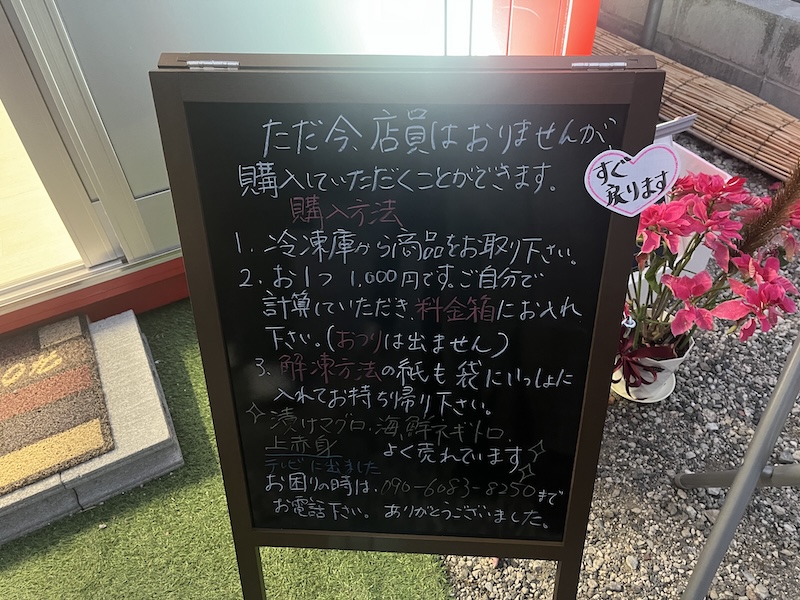 ただ今、店員はおりませんが、
購入していただくことができます。
すぐ
戻ります
購入方法
1. 冷凍庫から商品をお取り下さい。
2. お1つ 1,000円です。ご自分で
計算していただき、料金箱にお入れ
下さい。(おつりは出ません)
3. 解凍方法の紙も袋にいっしょに
入れてお持ち帰り下さい。
漬けマグロ、海鮮ネギトロ、
上赤身 よく売れています
テレビに出ました
お困りの時は、090-6083-8250まで
お電話下さい。ありがとうございました。